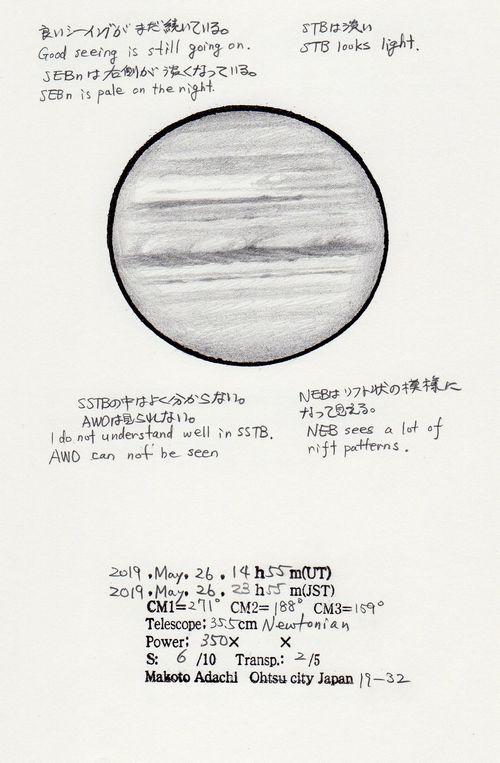 良いシーイングがまだ続いている。
Good seeing is still going on.
SEBnは右側が淡くなっている。
SEBn is pale on the right.
STBは淡い
STB looks light.
SSTBの中はよく分からない。
AWOは見られない。
I do not understand well in SSTB.
AWO can not be seen
NEBはリフト状の模様に
なって見える。
NEB sees a lot of
rift patterns.
2019.May.26.14h55m(UT)
2019.May.26.23h55m(JST)
CM1=271° CM2=188° CM3=159°
Telescope:35.5cm Newtonian
Power: 350× ×
S: 6 /10 Transp.: 2/5
Makoto Adachi Ohtsu city Japan 19-32